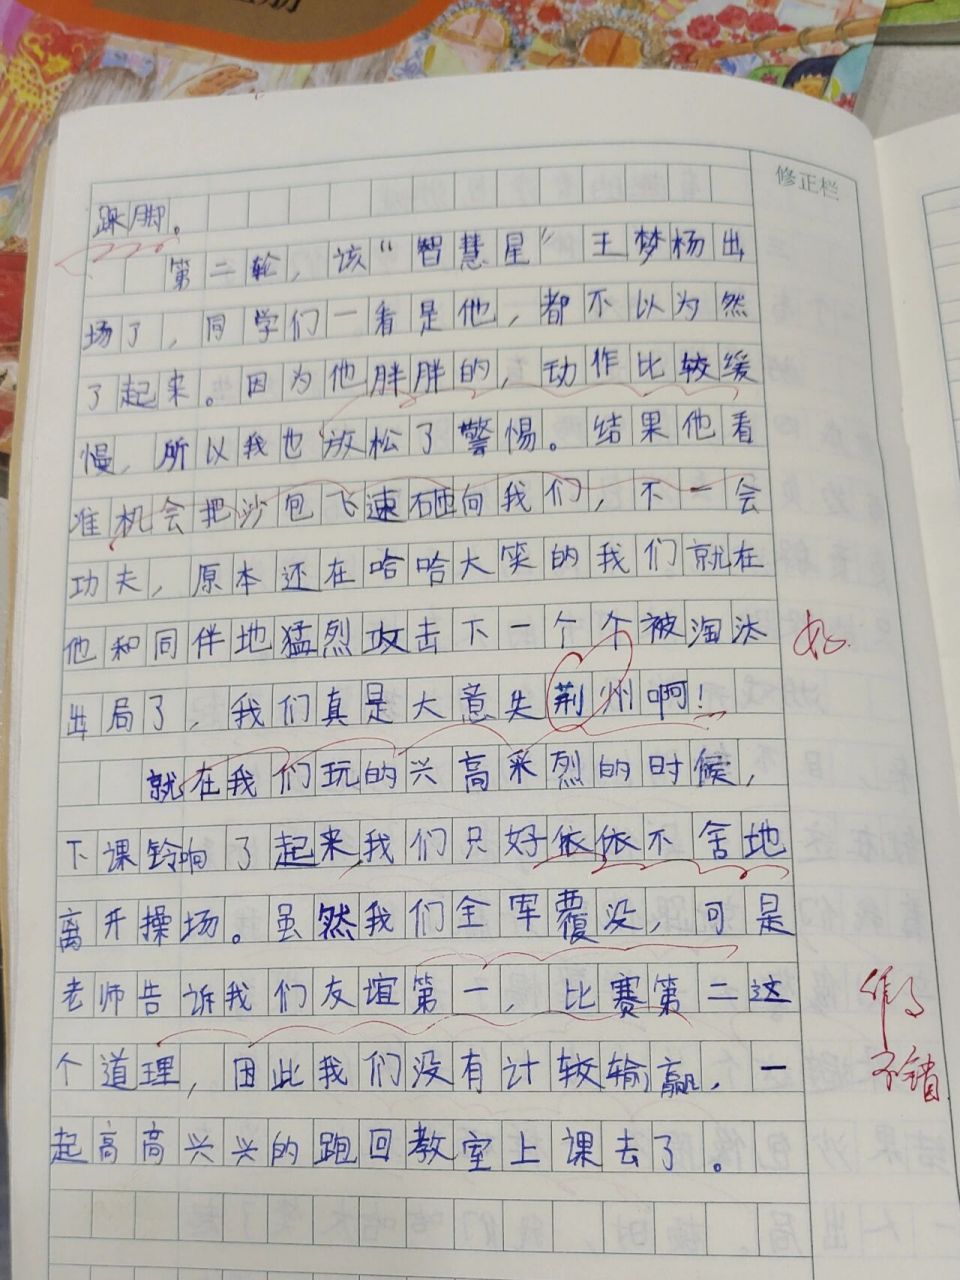 修正栏
跺脚。
第二轮，该“智慧星”王梦杨出
场了，同学们一看是他，都不以为然
了起来。因为他胖胖的，动作比较缓
慢，所以我也放松了警惕。结果他看
准机会把沙包飞速砸向我们，不一会
功夫，原本还在哈哈大笑的我们就在
他和同伴地猛烈攻击下一个个被淘汰
出局了，我们真是大意失荆州啊！
就在我们玩的兴高采烈的时候，
下课铃响了起来，我们只好依依不舍地
离开操场。虽然我们全军覆没，可是
老师告诉我们友谊第一，比赛第二这
个道理，因此我们没有计较输赢，一
起高高兴兴的跑回教室上课去了。
不错